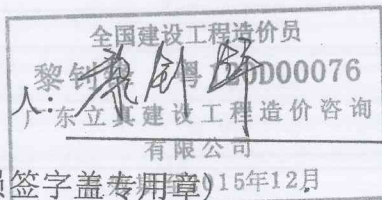 全国建设工程造价员
黎钊 粤 D00076
人:
广东立真建设工程造价咨询
有限公司
签字盖专用章) 015年12月